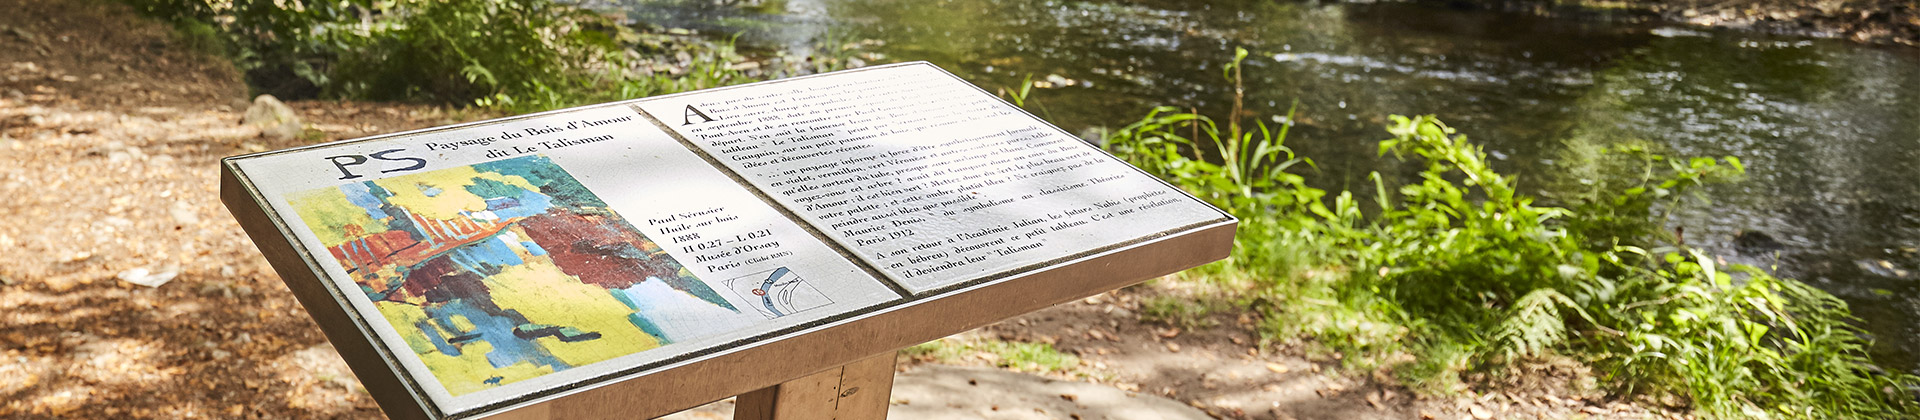 PS
Paysage du Bois d'Amour
dit Le Talisman
Paul Sérusier
Huile sur bois
1888
H 0.27 – L 0.21
Musée d'Orsay
Paris (Cliché RMN)
A
en septembre 1888, date
Pont-Aven et de sa rencontre avec Paul
départ. C'est
tableau " Le Talisman " peint par
Gauguin, sur un petit panneau de bois, qui
idées et découvertes récentes.
" ... un paysage informe à force d'être synthétiquement formulé
en violet, vermillon, vert Véronèse et autres couleurs pures, telles
qu'elles sortent du tube, presque sans mélange de blanc. Comment
voyez-vous cet arbre ? avait dit Gauguin dans un coin du Bois
d'Amour : il est bien vert ? Mettez donc du vert, le plus beau vert de
votre palette ; et cette ombre plutôt bleu ? Ne craignez pas de la
peindre aussi bleue que possible "
Maurice Denis " du symbolisme au classicisme. Théories "
Paris 1912
A son retour à l'Académie Julian, les futurs Nabis (prophètes
en hébreu) découvrent ce petit tableau. C'est une révélation,
il deviendra leur " Talisman "